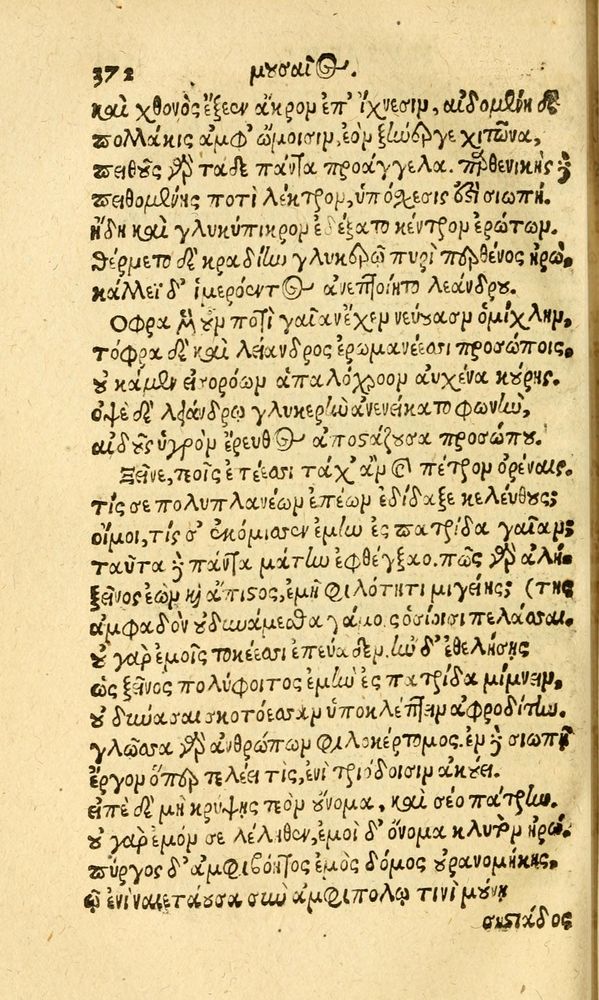 372 μουσαῖος.
καὶ χθονὸς ἔξεεν ἄκρον ἐπ' ἴχνεσιν, αἰδομένη δὲ
πολλάκις ἀμφ' ὤμοισιν, ἑὸν ξυνέεργε χιτῶνα,
πειθοῦς γὰρ τάδε πάντα προάγγελα. παρθενικῆς δὲ
πειθομένης ποτὶ λέκτρον, ὑπόσχεσις ἐστὶ σιωπή.
ἤδη καὶ γλυκύπικρον ἐδέξατο κέντρον ἐρώτων.
θέρμετο δὲ κραδίην γλυκερῷ πυρὶ παρθένος ἡρώ,
κάλλεϊ δ' ἱμερόεντος ἀνεπτοίητο λεάνδρου.
Οφρα μὲν οὖν ποτὶ γαῖαν ἔχεν νεύουσαν ὀμίχλην,
τόφρα δὲ καὶ λείανδρος ἐρωμανέεσσι προσώποις,
οὐ κάμεν εἰσορόων ἁπαλόχροον αὐχένα κούρης.
ὀψὲ δὲ λεάνδρῳ γλυκερὴν ἀνενείκατο φωνὴν,
αἰδοῦς ὑγρὸν ἔρευθος ἀποστάζουσα προσώπου.
Ξεῖνε, τεοῖς ἐπέεσσι τάχ' ἂν καὶ πέτρον ὀρίναις.
τίς σε πολυπλανέων ἐπέων ἐδίδαξε κελεύθους;
οἴμοι, τίς σ' ἐκόμισσεν ἐμὴν ἐς πατρίδα γαῖαν;
ταῦτα δὲ πάντα μάτην ἐφθέγξαο. πῶς γὰρ ἀλή-
ξεῖνος ἐὼν καὶ ἄπιστος, ἐμῇ φιλότητι μιγείης; (της
ἀμφαδὸν οὐ δυνάμεσθα γάμοις ὁσίοισι πελάσσαι.
οὐ γὰρ ἐμοῖς τοκέεσσι ἐπεύαδεν. ἢν δ' ἐθελήσῃς
ὡς ξεῖνος πολύφοιτος ἐμὴν ἐς πατρίδα μίμνειν,
οὐ δύνασαι σκοτόεσσαν ὑποκλέπτειν ἀφροδίτην.
γλῶσσα γὰρ ἀνθρώπων φιλοκέρτομος. ἐν δὲ σιωπῇ
ἔργον ὅπερ τελέει τις, ἐνὶ τριόδοισιν ἀκούει.
εἰπὲ δὲ μὴ κρύψῃς τεὸν οὔνομα, καὶ σέο πάτρην.
οὐ γὰρ ἐμόν σε λέληθεν, ἐμοὶ δ' ὄνομα κλυτὸν ἡρώ.
πύργος δ' ἀμφιβόητος ἐμὸς δόμος οὐρανομήκης,
ᾧ ἔνι ναιετάουσα σὺν ἀμφιπόλῳ τινὶ μούνῃ
σηστιάδος